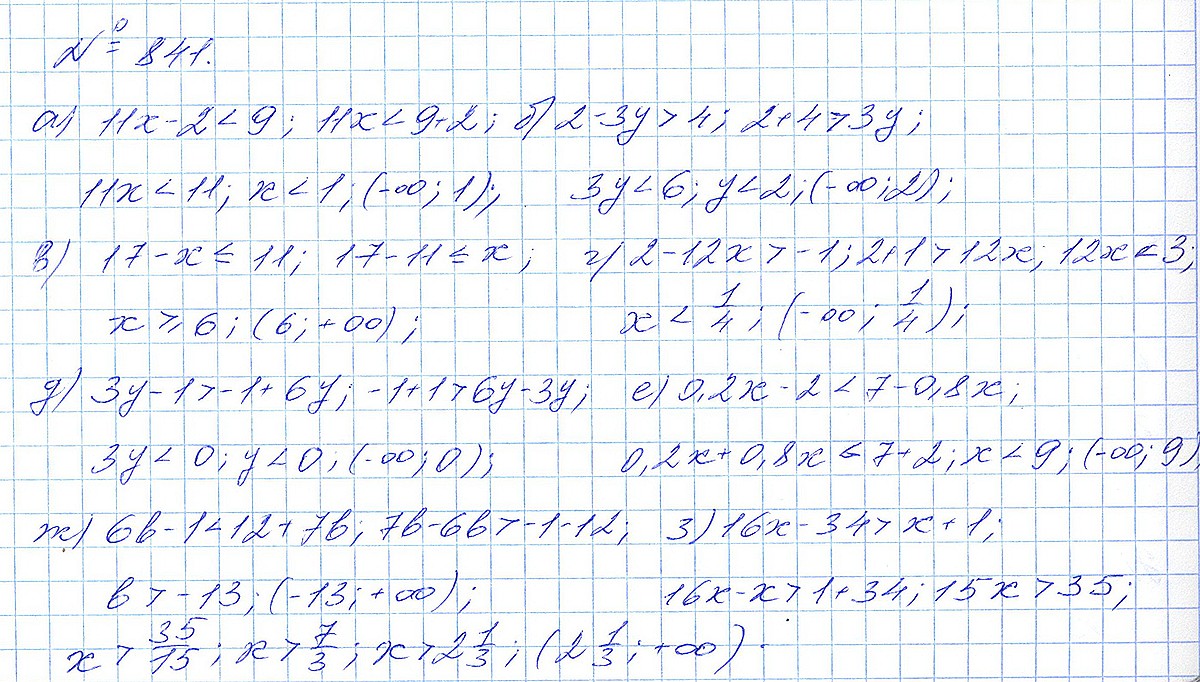 № 841.
а) 11x-2<9; 11x<9+2; б) 2-3y>4; 2+4>3y;
11x<11; x<1; (-∞; 1); 3y<6; y<2; (-∞; 2);
в) 17-x≤11; 17-11≤x; г) 2-12x>-1; 2+1>12x; 12x<3;
x≥6; (6; +∞); x<1/4; (-∞; 1/4);
д) 3y-1>-1+6y; -1+1>6y-3y; е) 0,2x-2<7-0,8x;
3y<0; y<0; (-∞; 0); 0,2x+0,8x<7+2; x<9; (-∞; 9)
ж) 6b-1<12+7b; 7b-6b>-1-12; з) 16x-34>x+1;
b>-13; (-13; +∞); 16x-x>1+34; 15x>35;
x>35/15; x>7/3; x>2 1/3; (2 1/3; +∞).